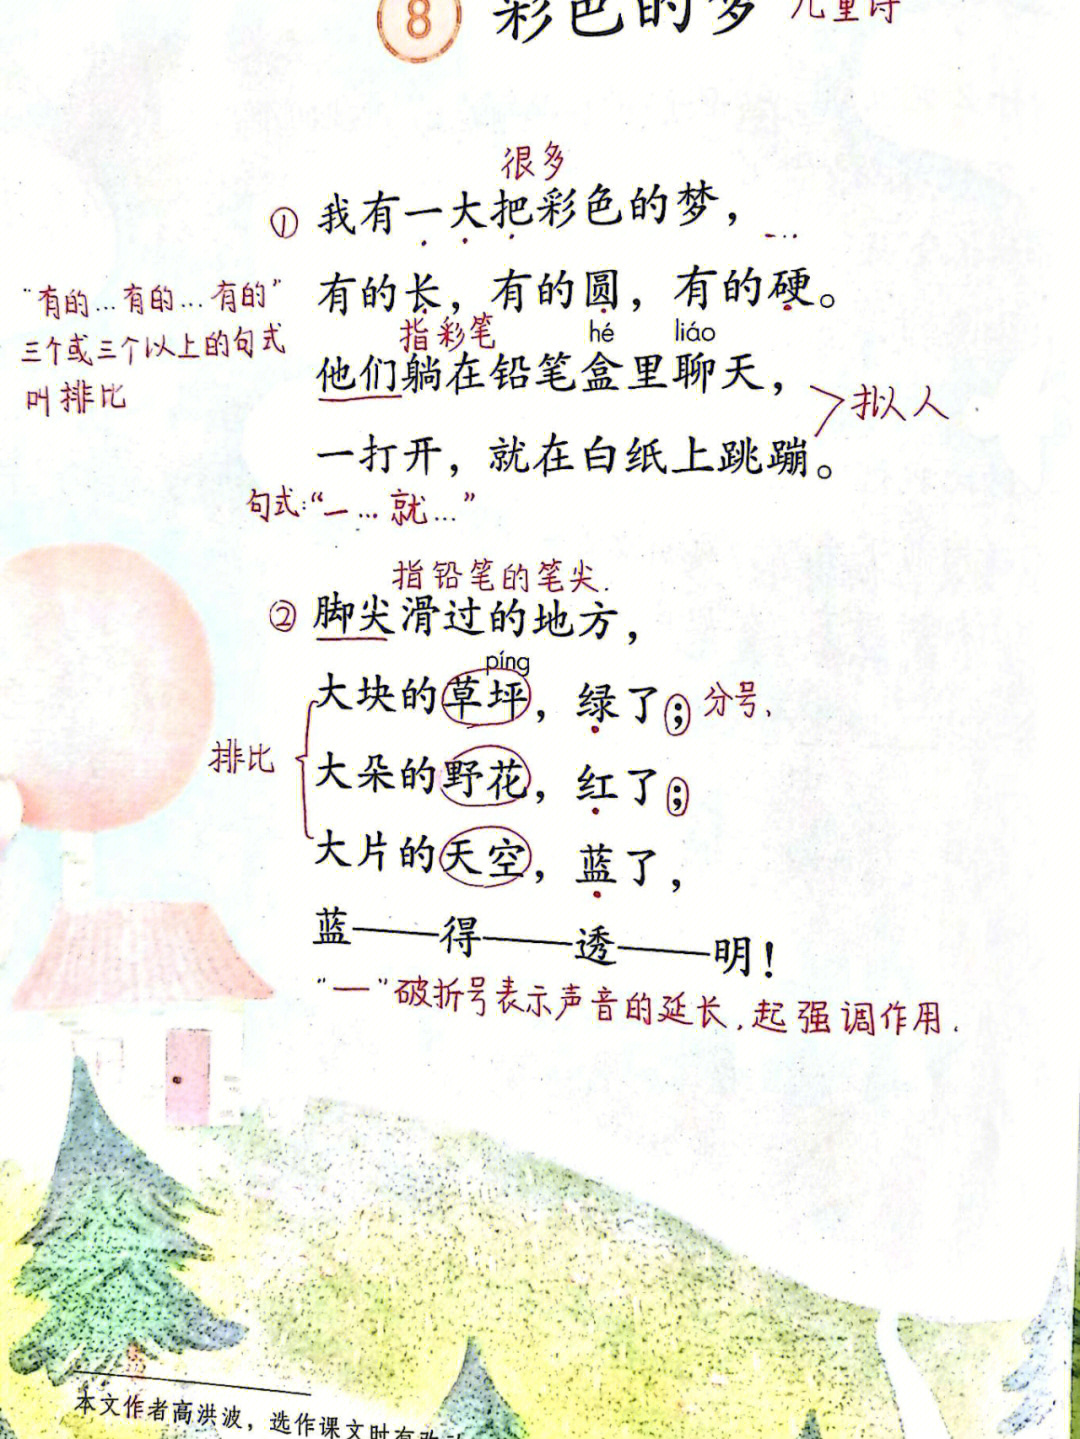 8 彩色的梦 儿童诗
很多
① 我有一大把彩色的梦，
“有的…有的…有的” 有的长，有的圆，有的硬。
三个或三个以上的句式 指彩笔 hé liáo
叫排比 他们躺在铅笔盒里聊天， 拟人
一打开，就在白纸上跳蹦。
句式：“一…就…”
指铅笔的笔尖.
② 脚尖滑过的地方，
píng
大块的草坪，绿了； 分号、
排比 大朵的野花，红了；
大片的天空，蓝了，
蓝——得——透——明！
“—”破折号表示声音的延长，起强调作用.
本文作者高洪波，选作课文时有改